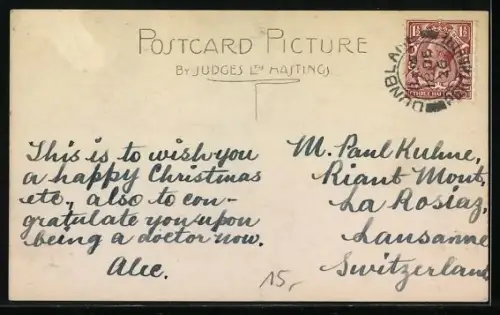 POSTCARD PICTURE
BY JUDGES LTD HASTINGS.
DUNBLANE
This is to wish you
a happy Christmas
etc, also to con-
gratulate you upon
being a doctor now.
Alec.
M. Paul Kuhne,
Riant Mont,
La Rosiaz,
Lausanne
Switzerland
15,-